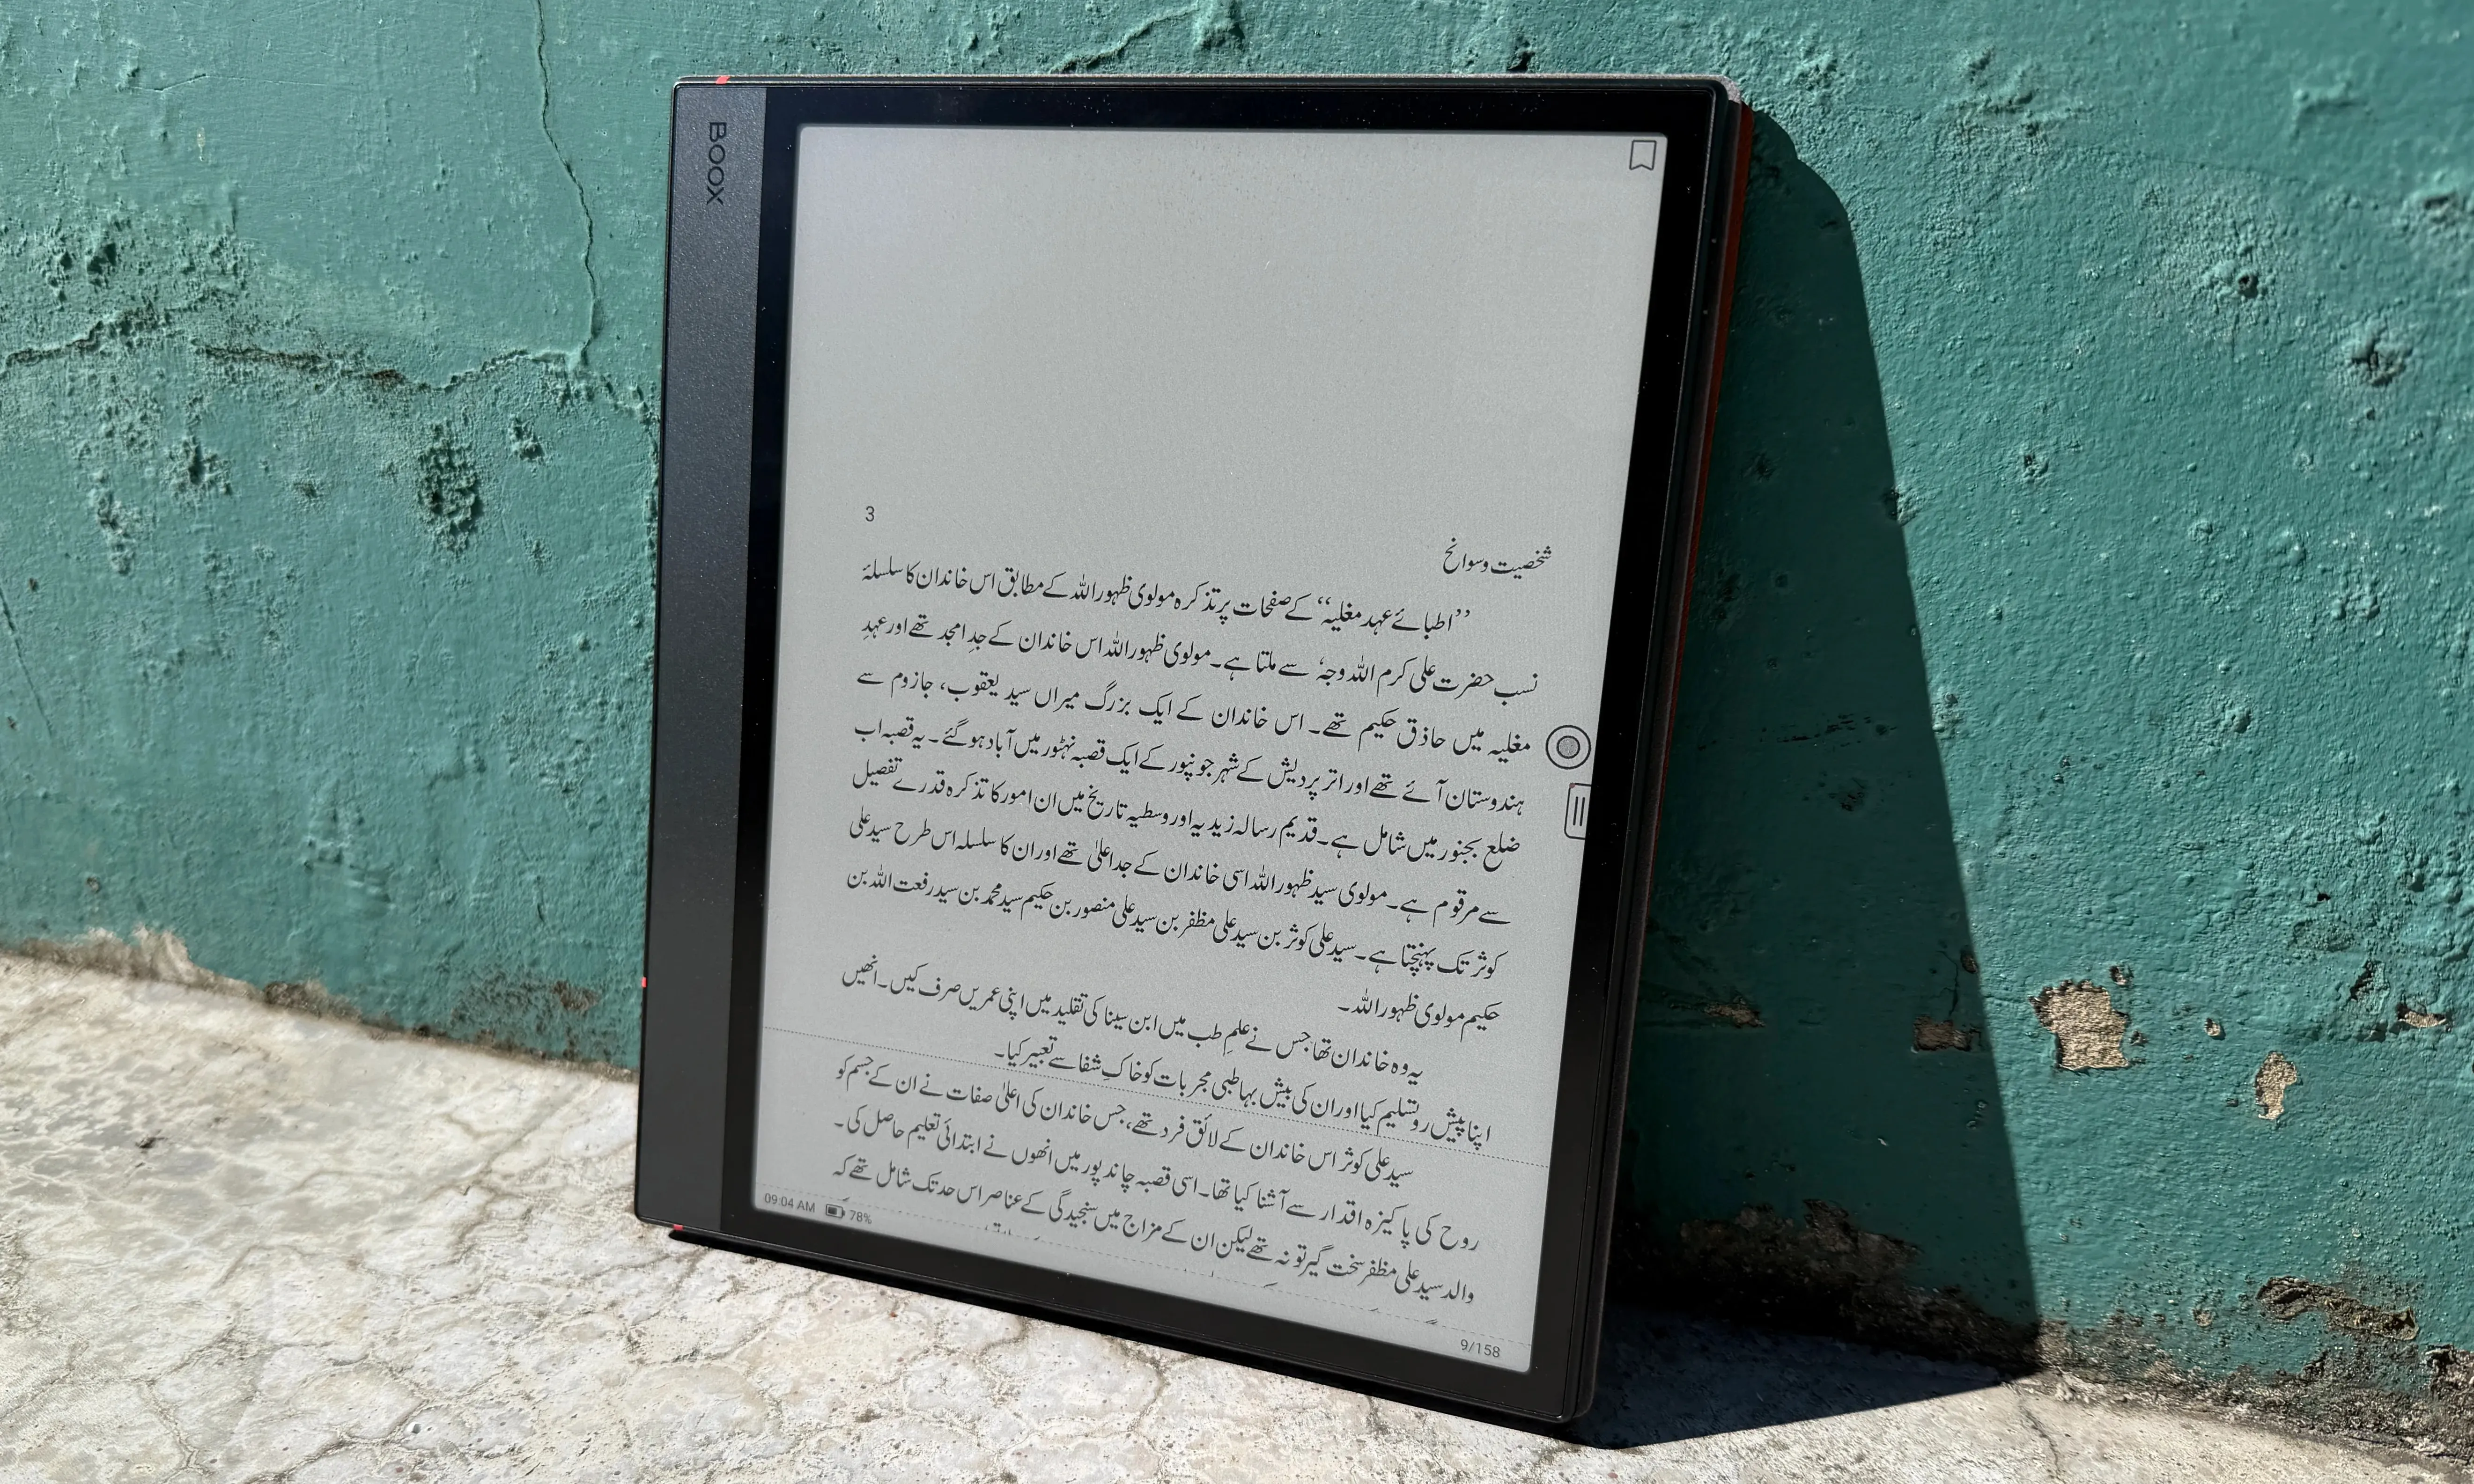 BOOX
3
شخصیت و سوانح
’’اطبائے عہد مغلیہ‘‘ کے صفحات پر تذکرہ مولوی ظہور اللہ کے مطابق اس خاندان کا سلسلۂ
نسب حضرت علی کرم اللہ وجہٗ سے ملتا ہے۔ مولوی ظہور اللہ اس خاندان کے جدِ امجد تھے اور عہدِ
مغلیہ میں حاذق حکیم تھے۔ اس خاندان کے ایک بزرگ میراں سید یعقوب، جازوم سے
ہندوستان آئے تھے اور اتر پردیش کے شہر جونپور کے ایک قصبہ نہٹور میں آباد ہوگئے۔ یہ قصبہ اب
ضلع بجنور میں شامل ہے۔ قدیم رسالہ زیدیہ اور وسطیہ تاریخ میں ان امور کا تذکرہ قدرے تفصیل
سے مرقوم ہے۔ مولوی سید ظہور اللہ اسی خاندان کے جد اعلیٰ تھے اور ان کا سلسلہ اس طرح سید علی
کوثر تک پہنچتا ہے۔ سید علی کوثر بن سید علی مظفر بن سید علی منصور بن حکیم سید محمد بن سید رفعت اللہ بن
حکیم مولوی ظہور اللہ۔
یہ وہ خاندان تھا جس نے علمِ طب میں ابن سینا کی تقلید میں اپنی عمریں صرف کیں۔ انھیں
اپنا پیش رو تسلیم کیا اور ان کی بیش بہا طبی مجربات کو خاکِ شفا سے تعبیر کیا۔
سید علی کوثر اس خاندان کے لائق فرد تھے، جس خاندان کی اعلیٰ صفات نے ان کے جسم کو
روح کی پاکیزہ اقدار سے آشنا کیا تھا۔ اسی قصبہ چاندپور میں انھوں نے ابتدائی تعلیم حاصل کی۔
والد سید علی مظفر سخت گیر تو نہ تھے لیکن ان کے مزاج میں سنجیدگی کے عناصر اس حد تک شامل تھے کہ
09:04 AM 78%
9/158